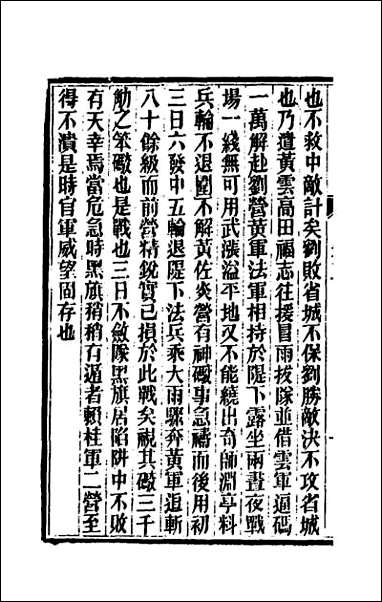 也不救中敵計矣劉敗省城不保劉勝敵決不攻省城
也乃遣黃雲高田福志往援冒雨拔隊並借雲軍逼碼
一萬解赴劉營黃軍法軍相持於隄下露坐兩晝夜戰
場一綫無可用武漲溢平地又不能繞出奇師淵亭料
兵輪不退圍不解黃佐炎營有神礮事急禱而後用初
三日六發中五輪退隄下法兵乘大雨驟奔黃軍追斬
八十餘級而前營精銳實已損於此戰矣視其礮三千
觔之笨礮也是戰也三日不斂隊黑旗居陷阱中不敗
有天幸焉當危急時黑旗稍稍有遁者賴桂軍二營至
得不潰是時官軍威望固存也